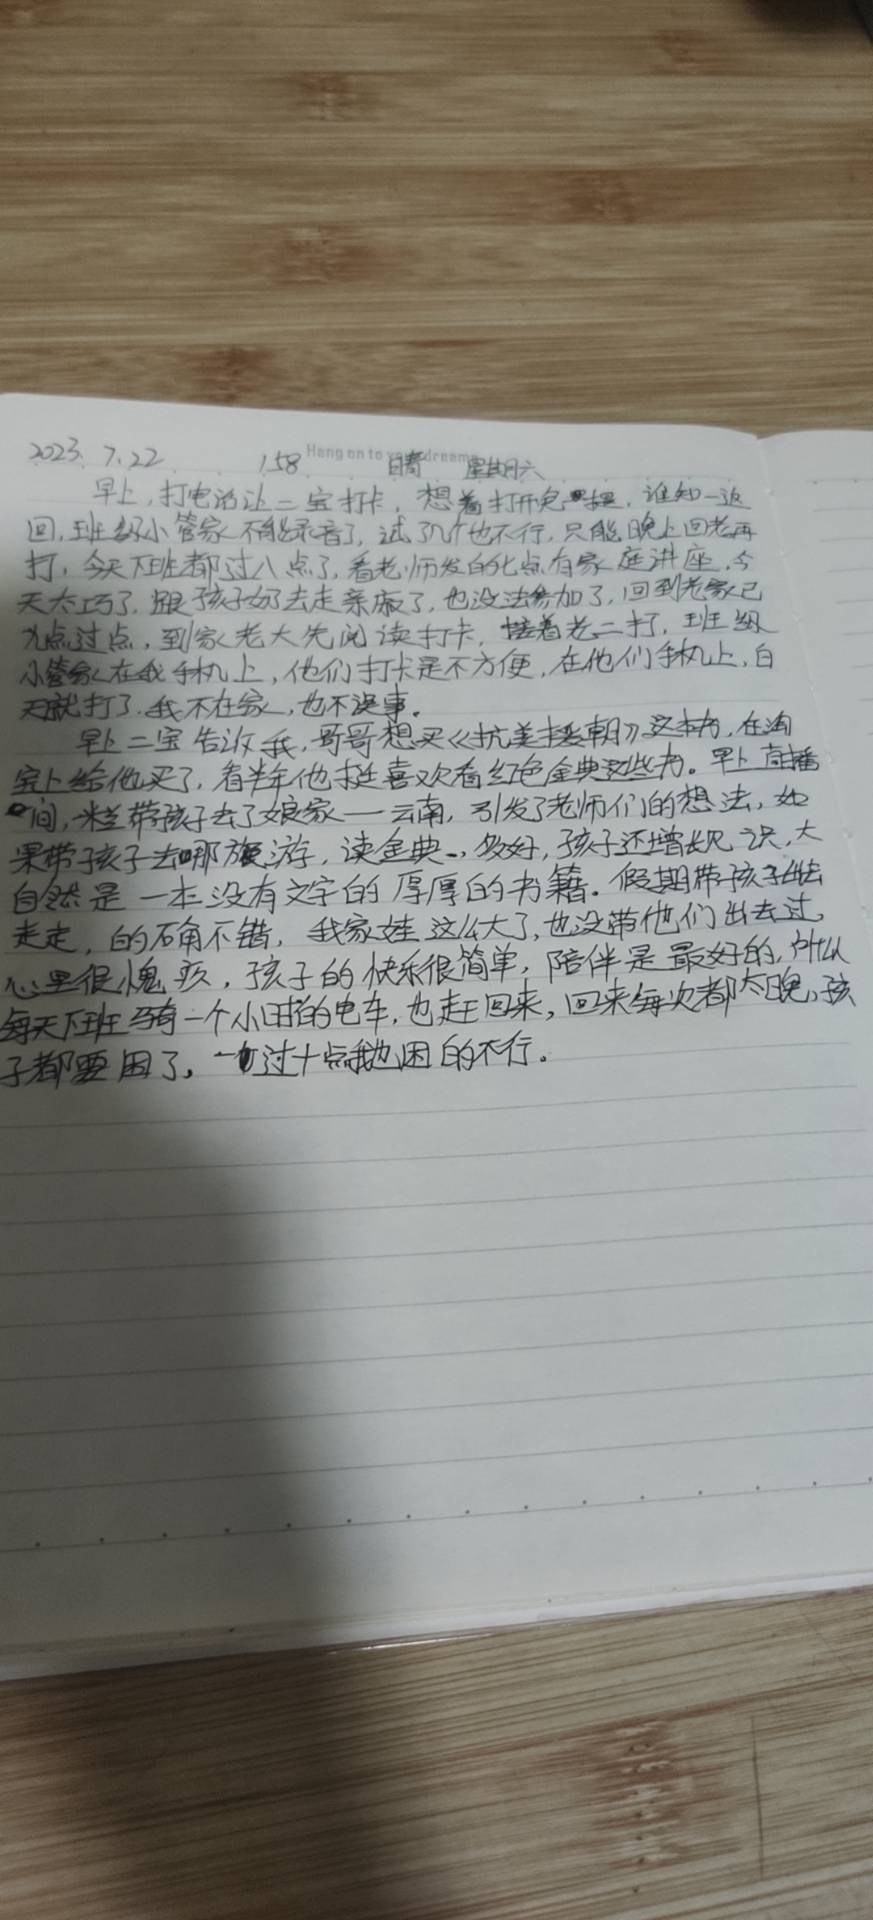 2023. 7.22 158 Hang on to your dreams 晴 星期六
早上,打电话让二宝打卡,想着打开免提,谁知一返
回,班级小管家不能录音了,试了几个也不行,只能晚上回老再
打,今天下班都过八点了,看老师发的九点有家庭讲座,今
天太巧了,跟孩子奶去走亲戚了,也没法参加了,回到老家已
九点过点,到家老大先阅读打卡,接着老二打,班级
小管家在我手机上,他们打卡是不方便,在他们手机上,白
天就打了,我不在家,也不误事。
早上二宝告诉我,哥哥想买《抗美援朝》这本书,在淘
宝上给他买了,看半年他挺喜欢看红色金典这些书。早上直播
间,米兰带孩子去了娘家一云南,引发了老师们的想法,如
果带孩子去哪旅游,读金典,多好,孩子还增长见识,大
自然是一本没有文字的厚厚的书籍。假期带孩子出去
走走,的确不错,我家娃这么大了,也没带他们出去过,
心里很愧疚,孩子的快乐很简单,陪伴是最好的,所以
每天下班骑一个小时的电车,也赶回来,回来每次都太晚,孩
子都要困了,一过十点我也困的不行。